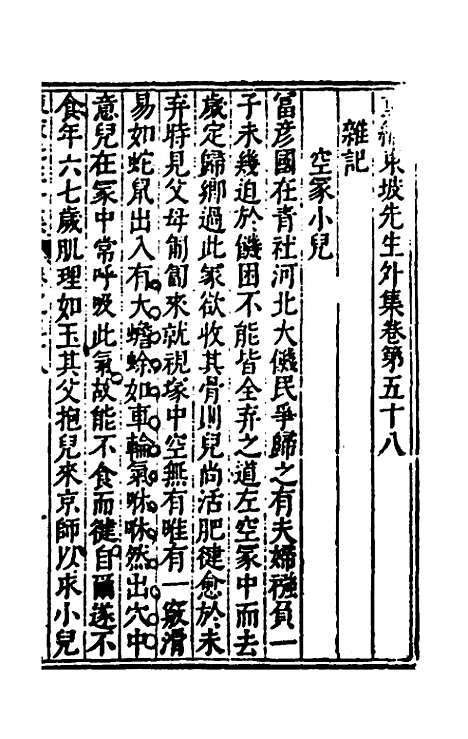 重編東坡先生外集卷第五十八
雜記
空冢小兒
富彥國在青社河北大饑民爭歸之有夫婦襁負一
子未幾迫於饑困不能皆全弃之道左空冢中而去
歲定歸鄉過此冢欲收其骨則兒尚活肥健愈於未
弃時見父母匍匐來就視塚中空無有唯有一竅滑
易如蛇鼠出入有大蟾蜍如車輪氣咻咻然出穴中
意兒在冢中常呼吸此氣故能不食而健自爾遂不
食年六七歲肌理如玉其父抱兒來京師以示小兒